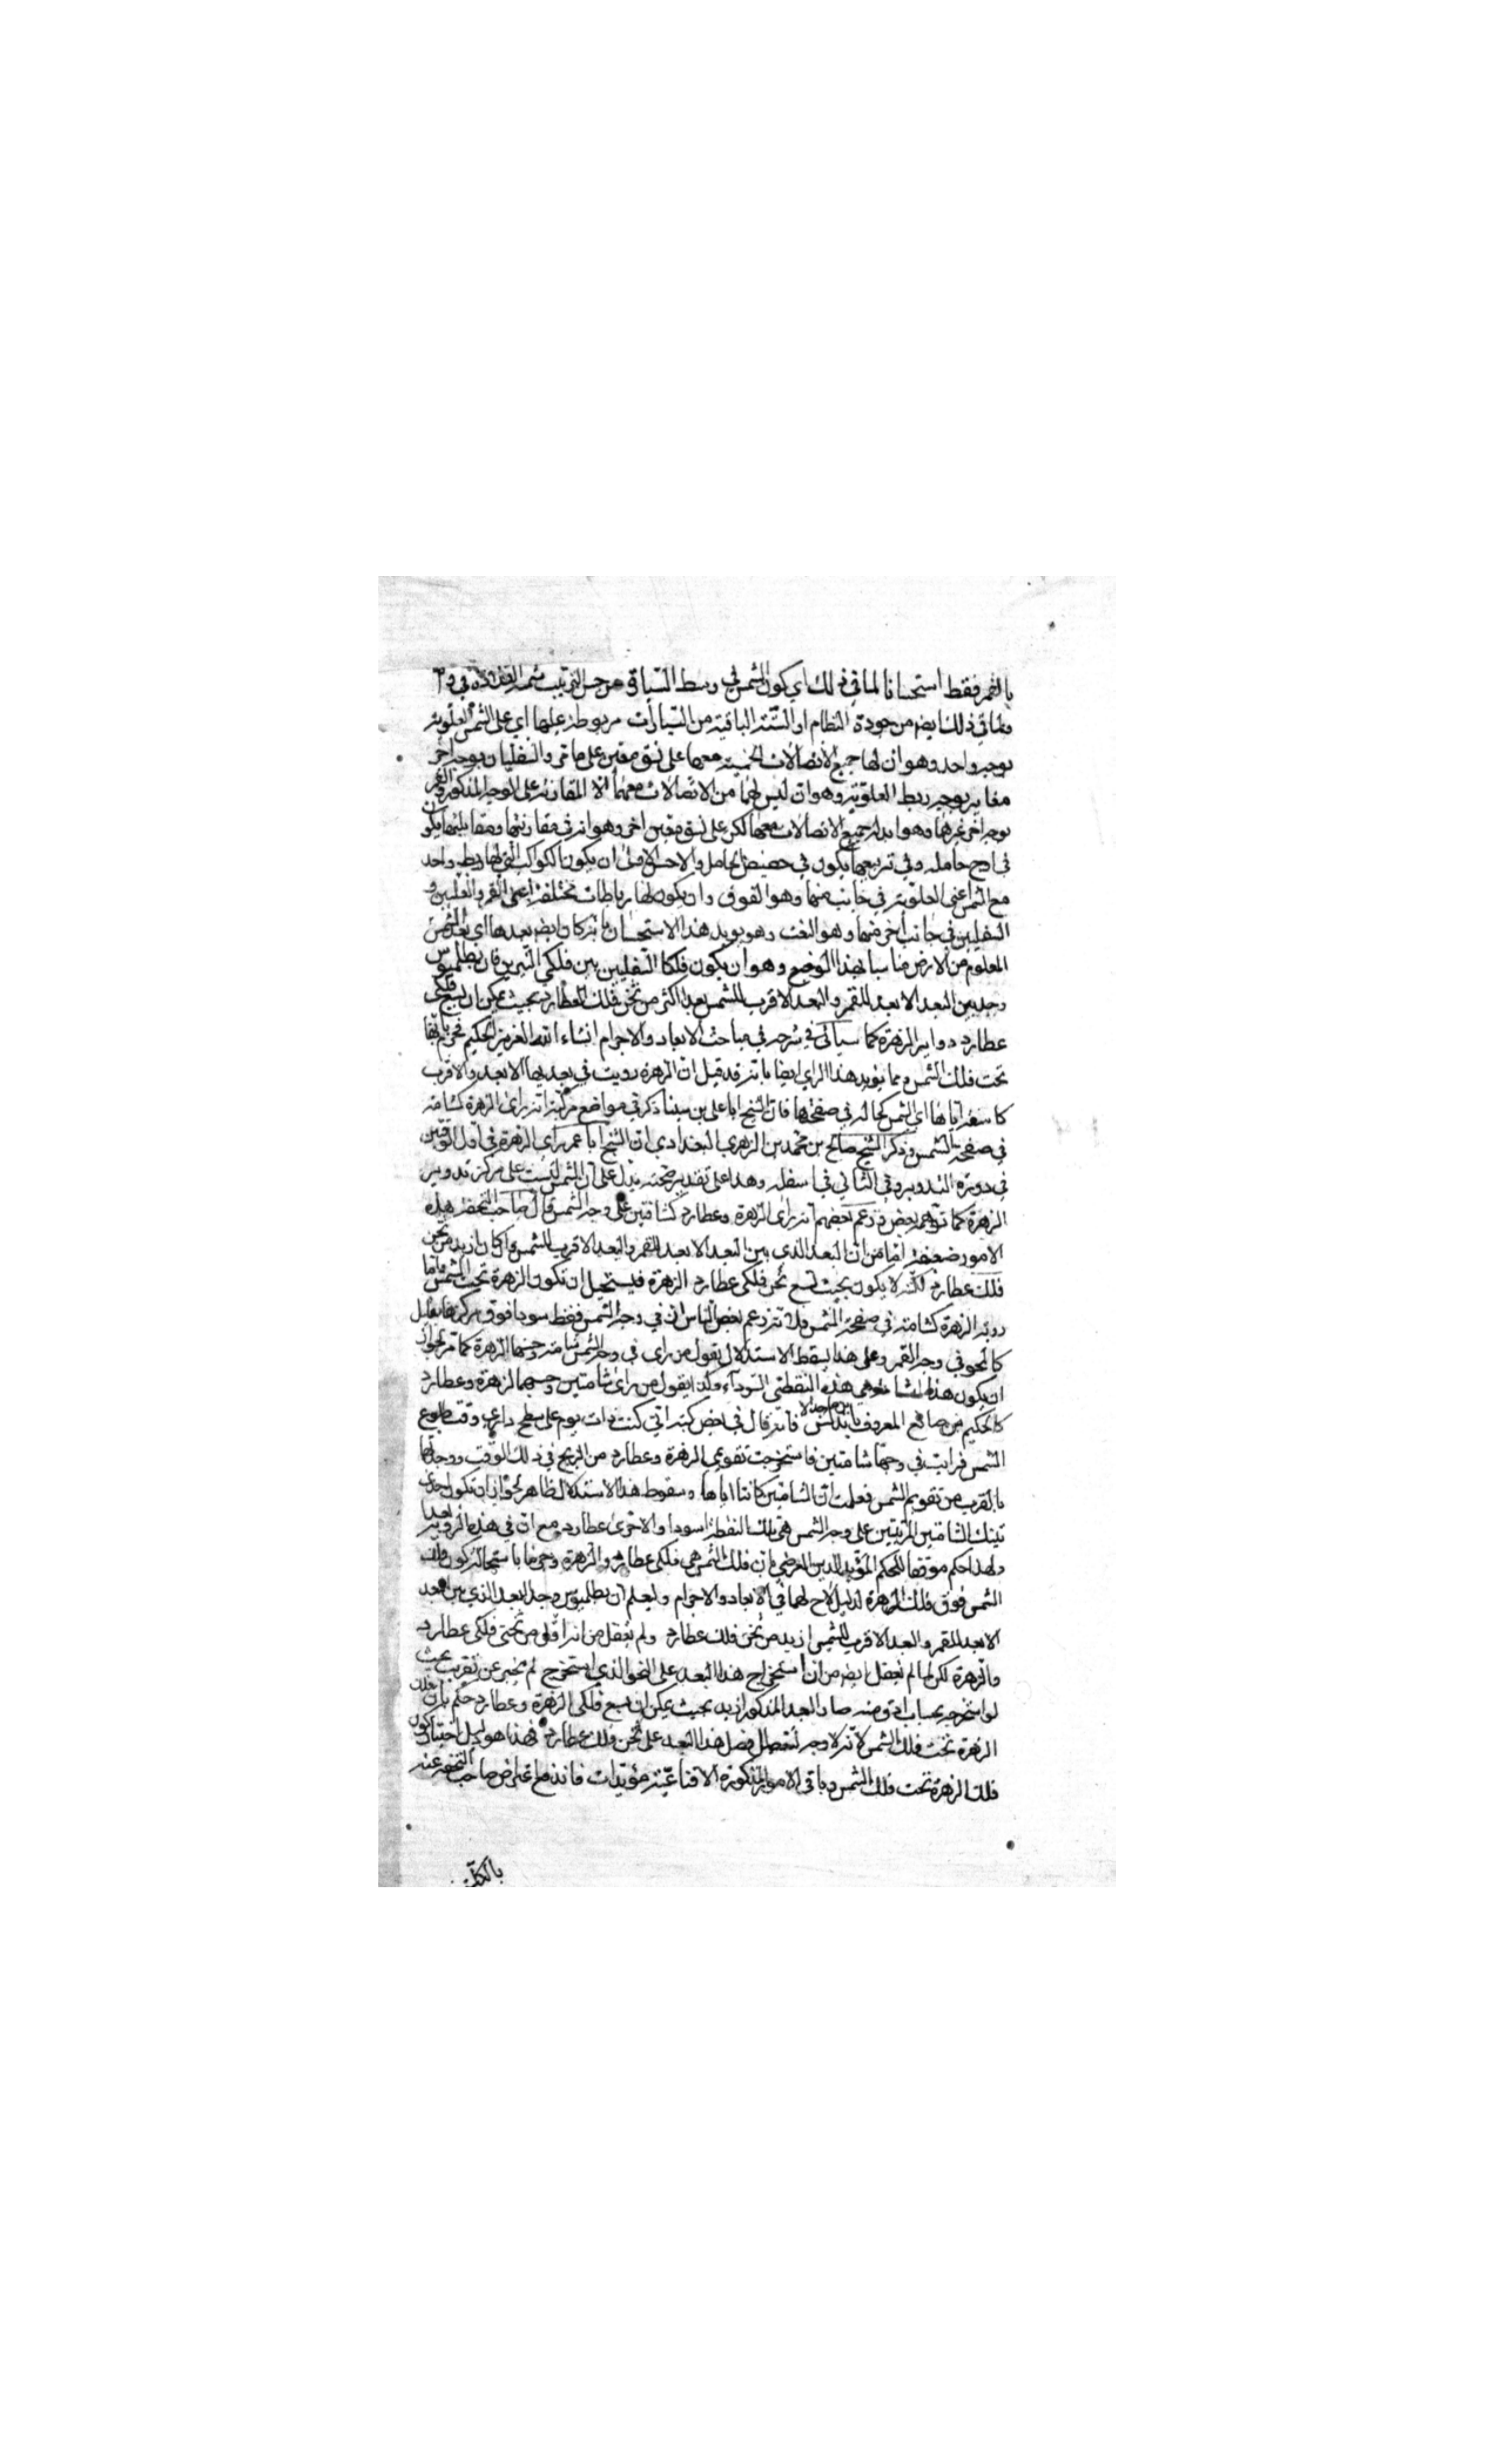 بالقمر فقط استحسانا لما في ذلك اي كون الشمس في وسط السباق من حسن الترتيب
ولما في ذلك ايضا من جودة النظام اذ الستة الباقية من السيارات مربوطة عليها اي على الشمس العلوية
بوجه واحد وهو ان لها جميع الاتصالات الخمسة معها على نسق معين على ما مر والسفليان بوجه اخر
مغاير بوجه ربط العلوية وهو ان ليس لهما من الاتصالات معها الا المقارنة على الوجه المذكور والقمر
بوجه اخر غيرهما وهو ان له جميع الاتصالات معها لكن على نسق معين اخر وهو انه في مقارنتها ومقابلتها يكون
في اوج حامله وفي تربيعها يكون في حضيض الحامل والاحسن الاولى ان يكون الكواكب التي لها ربط واحد
مع الشمس اعني العلوية في جانب منها وهو الفوق وان يكون لها رباطات مختلفة اعني القمر و
السفليين في جانب اخر منها وهو التحت وهو يويد هذا الاستحسان بانه كان ايضا بعدها اي بعد الشمس
المعلوم من الارض مناسبا لهذا الموضع وهو ان يكون فلكا السفليين بين فلكي النيرين فان بطلميوس
وجد بين البعد الابعد للقمر والبعد الاقرب للشمس بعدا اكثر من ثخن فلك العطارد بحيث يمكن ان يسع فلكي
عطارد دواير الزهرة كما سياتي في شرحه في مباحث الابعاد والاجرام انشاء الله العزيز الحكيم فحزم بانها
تحت فلك الشمس ومما يويد هذا الراي ايضا بانه قد قيل ان الزهرة رويت في بعديها الابعد والاقرب
كاسفة اياها اي الشمس كخال في صفحتها فان الشيخ ابا علي بن سينا ذكر في مواضع من كتبه انه راى الزهرة كشامة
في صفحة الشمس وذكر الشيخ صالح بن محمد بن الزهري البغدادي ان الشيخ ابا عمر راى الزهرة في اول الوقتين
في دورة التدوير وفي الثاني في اسفله وهذا على تقدير صحته يدل على ان الشمس ليست على مركز تدوير
الزهرة كما توهمه بعض وزعم بعضهم انه راى الزهرة وعطارد كشامتين على وجه الشمس قال صاحب التحفة هذه
الامور ضعيفة اما من ان البعد الذي بين البعد الابعد للقمر والبعد الاقرب للشمس وان كان ازيد من ثخن
فلك عطارد لكنه لا يكون بحيث يسع ثخن فلكي عطارد الزهرة فيستحيل ان تكون الزهرة تحت الشمس واما
روية الزهرة كشامة في صفحة الشمس فلانه زعم بعض الناس ان في وجه الشمس نقطة سودا فوق مركزها بقليل
كالمحو في وجه القمر وعلى هذا يسقط الاستدلال بقول من راى في وجه الشمس شامة وحسبها الزهرة كما مر لجواز
ان يكون هذه الشامة هي هذه النقطة السوداء ولذا يقول من راى شامتين وحسبهما الزهرة وعطارد
كالحكيم بن صائغ المعروف فانه قال في بعض كتبه اني كنت ذات يوم على سطح داري وقت طلوع
الشمس فرايت في وجهها شامتين فاستخرجت تقويمي الزهرة وعطارد من الزيج في ذلك الوقت ووجدتهما
بالقرب من تقويم الشمس فعلمت ان الشامتين كانتا اياهما وسقوط هذا الاستدلال ظاهر لجواز ان تكون احدى
تينك الشامتين المرئيتين على وجه الشمس هي تلك النقطة السودا والاخرى عطارد مع ان في هذه الروية بعدا
ولهذا حكم موافقا للحكيم المؤيد الدين العرضي بان فلك الشمس هي فلكي عطارد والزهرة وجزما باستحالة كون فلك
الشمس فوق فلك الزهرة لدليل لاح لهما في الابعاد والاجرام وليعلم ان بطلميوس وجد البعد الذي بين البعد
الابعد للقمر والبعد الاقرب للشمس ازيد من ثخن فلك عطارد ولم يغفل من انه اقل من ثخني فلكي عطارد
والزهرة لكن لما لم يغفل ايضا من ان استخراج هذا البعد على النحو الذي استخرج لم يخبر عن تقريب بحيث
لو استخرجه بحساب ادق منه صار البعد المذكور ازيد بحيث يمكن ان يسع فلكي الزهرة وعطارد حكم بان فلك
الزهرة تحت فلك الشمس لانه لا وجه لتعطل فضل هذا البعد على ثخن فلك عطارد فهذا هو دليل اختيار كون
فلك الزهرة تحت فلك الشمس وباقي الامور المذكورة الاقناعية مؤيدات فاندفع اعتراض صاحب التحفة عنه
بالكلية